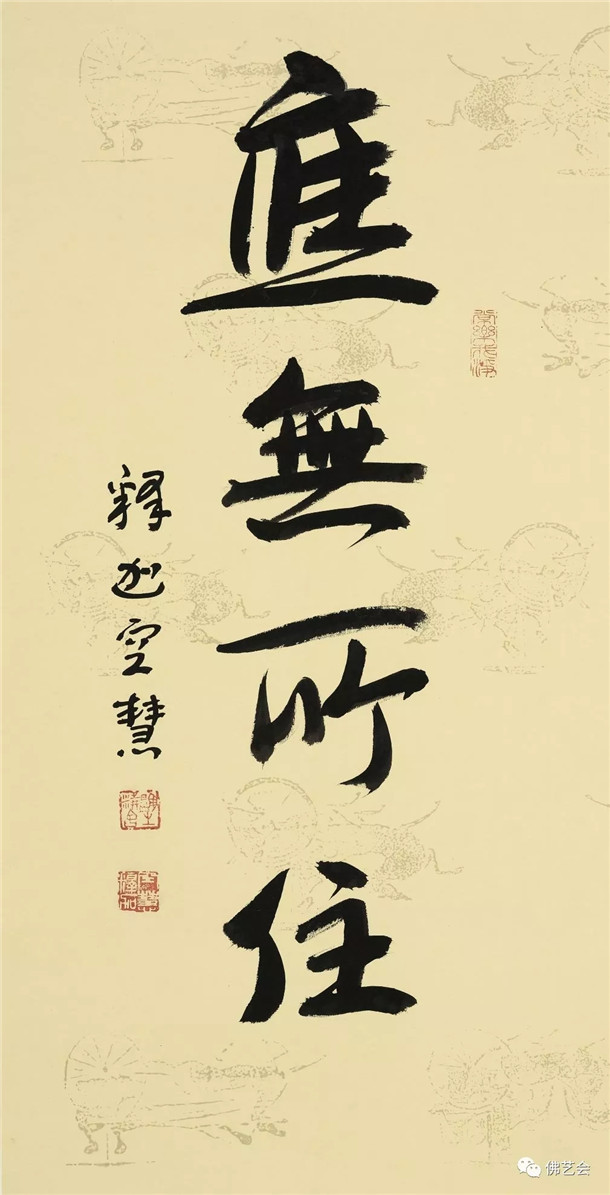 應無所住
释迦空慧
佛艺会